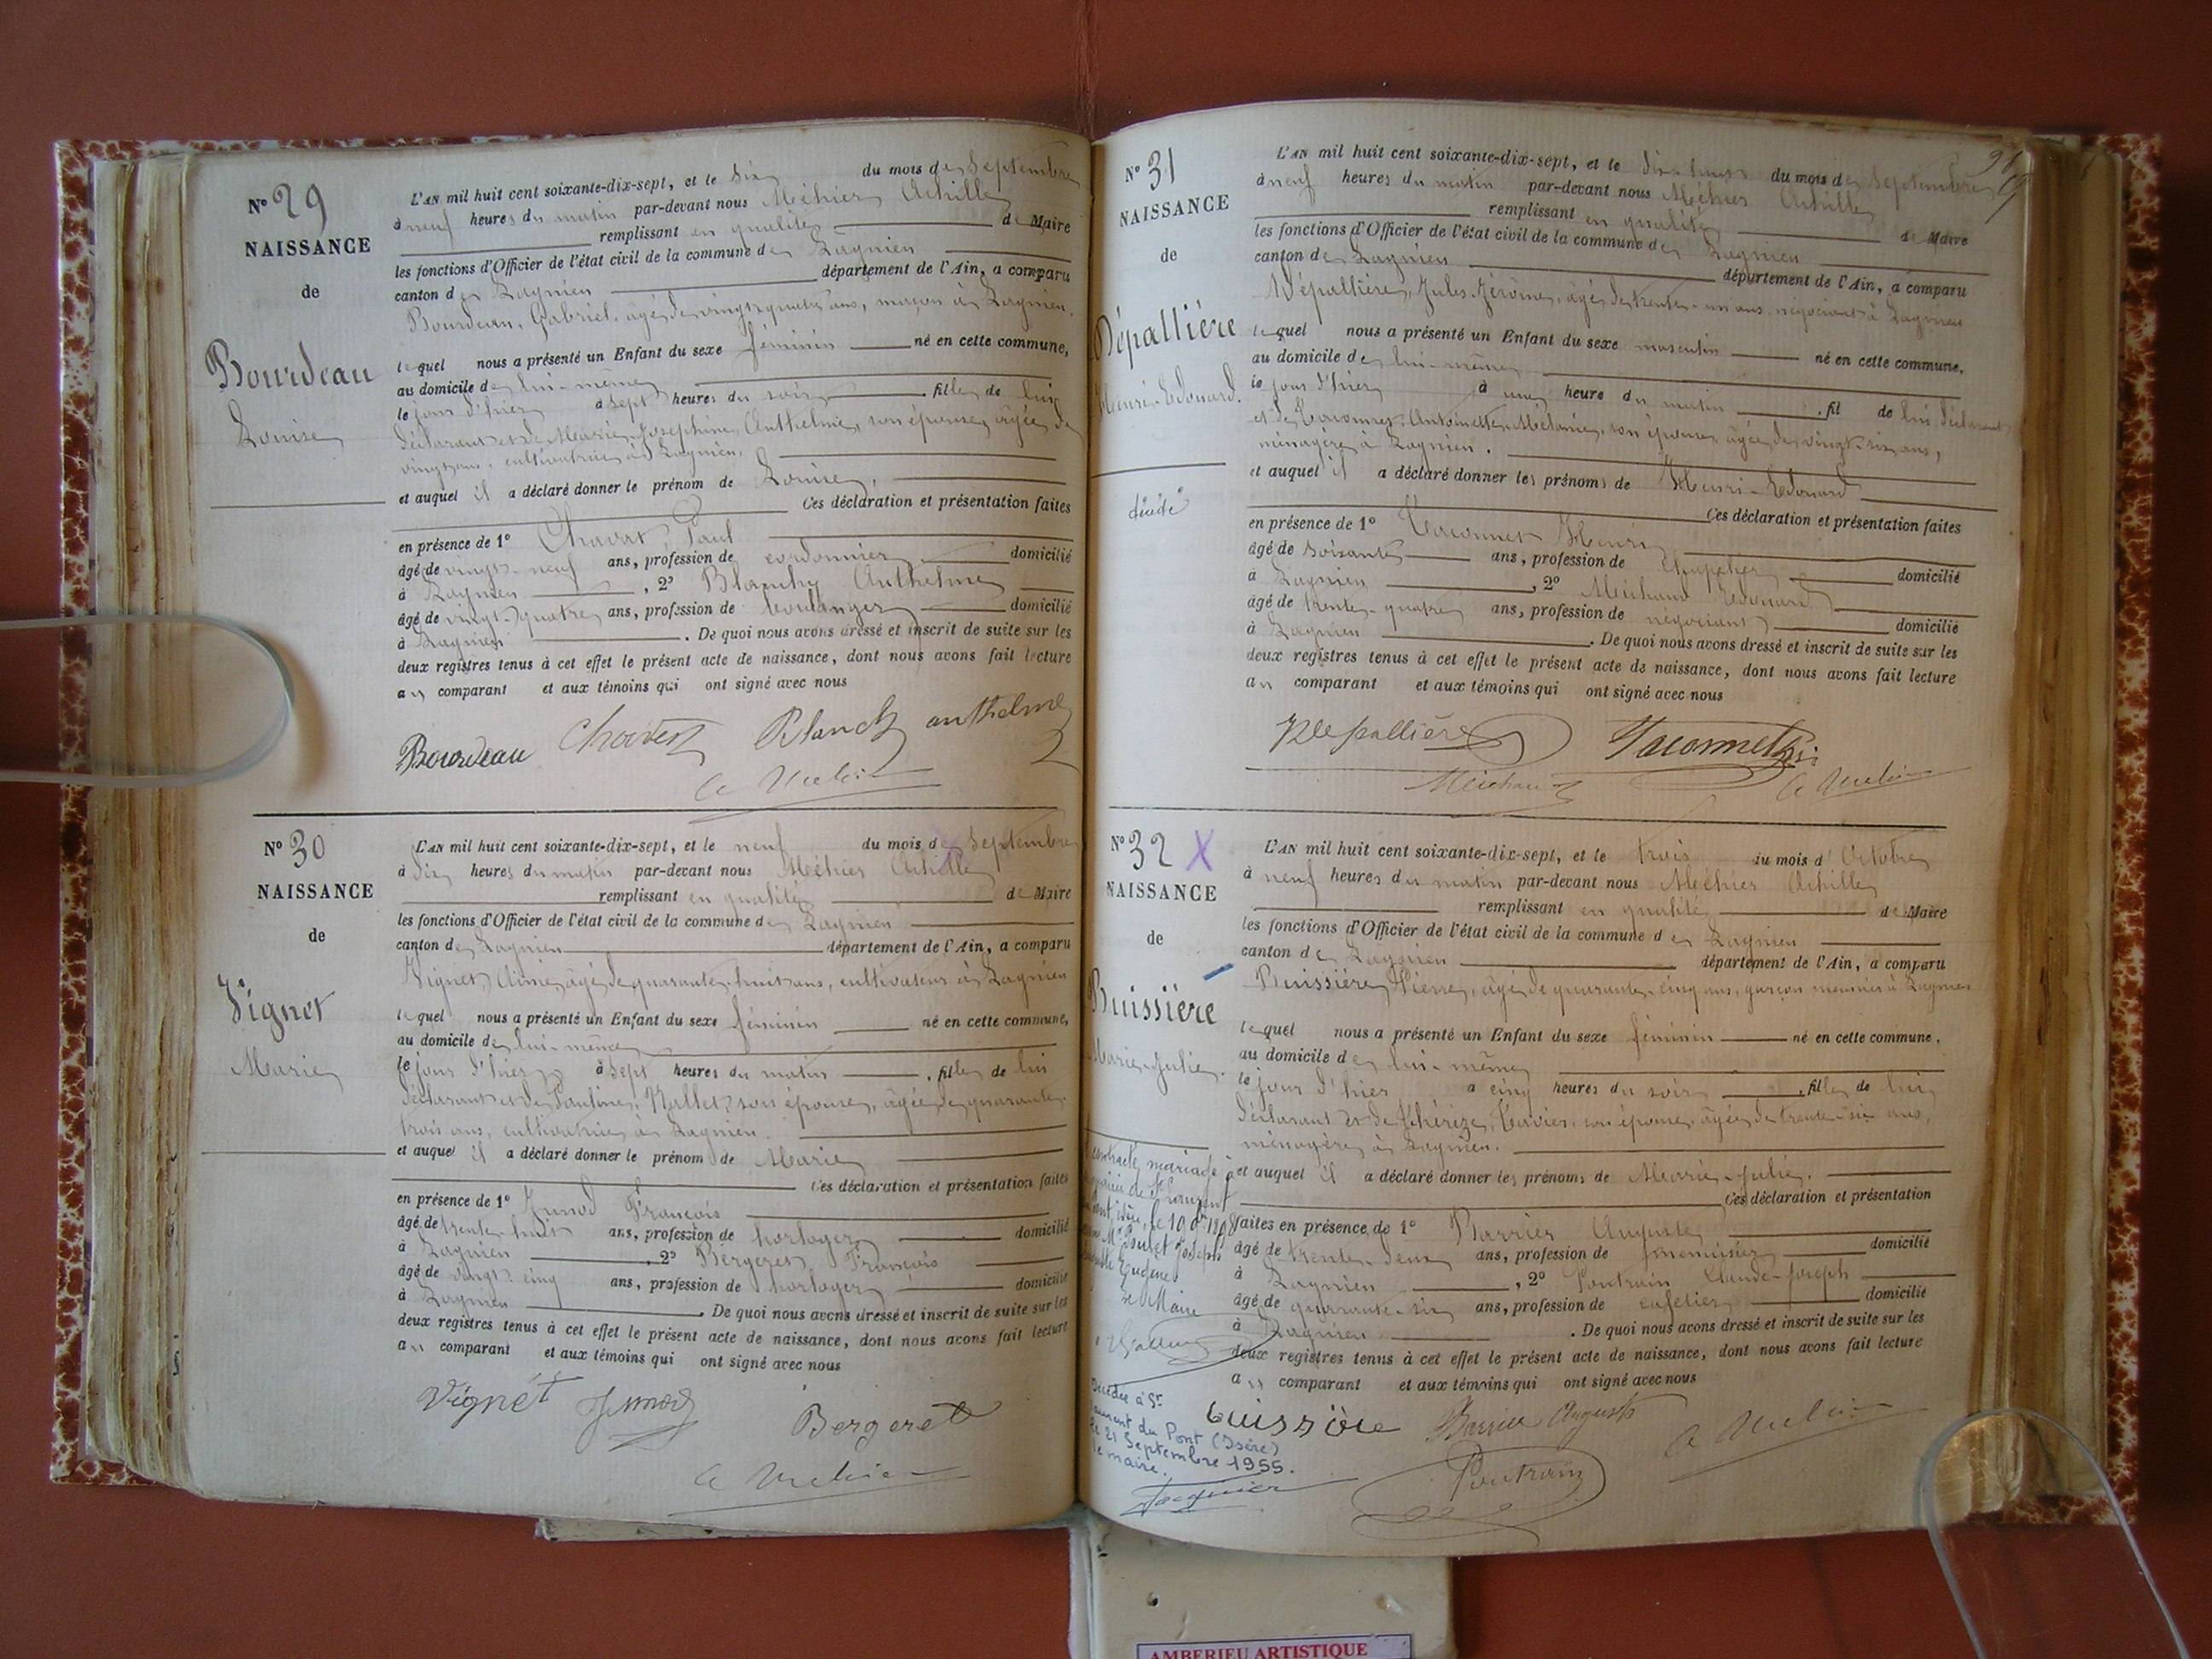 N° 29
NAISSANCE
de
Bourdeau
Louise
L'AN mil huit cent soixante-dix-sept, et le six du mois de Septembre
à neuf heures du matin par-devant nous Méhier Achille
remplissant en qualité de Maire
les fonctions d'Officier de l'état civil de la commune de Lagnieu
canton de Lagnieu département de l'Ain, a comparu
Bourdeau, Gabriel, âgé de vingt-quatre ans, maçon à Lagnieu,
lequel nous a présenté un Enfant du sexe féminin né en cette commune,
au domicile de lui-même
le jour d'hier à sept heures du soir, fille de lui
déclarant et de Marie Joséphine Anthelmie, son épouse, âgée de
vingt ans, cultivatrice à Lagnieu,
et auquel il a déclaré donner le prénom de Louise,
Ces déclaration et présentation faites
en présence de 1° Chavat, Paul
âgé de vingt-neuf ans, profession de cordonnier domicilié
à Lagnieu, 2° Blanchy Anthelme
âgé de vingt-quatre ans, profession de boulanger domicilié
à Lagnieu. De quoi nous avons dressé et inscrit de suite sur les
deux registres tenus à cet effet le présent acte de naissance, dont nous avons fait lecture
au comparant et aux témoins qui ont signé avec nous
Bourdeau anthelme
N° 30
NAISSANCE
de
Vignet
Marie
L'AN mil huit cent soixante-dix-sept, et le neuf du mois de Septembre
à dix heures du matin par-devant nous Méhier Achille
remplissant en qualité de Maire
les fonctions d'Officier de l'état civil de la commune de Lagnieu
canton de Lagnieu département de l'Ain, a comparu
Vignet, Aimé, âgé de quarante-huit ans, cultivateur à Lagnieu
lequel nous a présenté un Enfant du sexe féminin né en cette commune,
au domicile de lui-même
le jour d'hier à sept heures du matin, fille de lui
déclarant et de Pantine, son épouse, âgée de quarante-
trois ans, cultivatrice à Lagnieu.
et auquel il a déclaré donner le prénom de Marie
Ces déclaration et présentation faites
en présence de 1° Junod François
âgé de trente-huit ans, profession de horloger domicilié
à Lagnieu, 2° Bergeret François
âgé de vingt-cinq ans, profession de horloger domicilié
à Lagnieu. De quoi nous avons dressé et inscrit de suite sur les
deux registres tenus à cet effet le présent acte de naissance, dont nous avons fait lecture
au comparant et aux témoins qui ont signé avec nous
Vignet Junod Bergeret
N° 31
NAISSANCE
de
Dépallière
Henri-Edouard.
décédé
L'AN mil huit cent soixante-dix-sept, et le dix-huit du mois de Septembre
à neuf heures du matin par-devant nous Méhier Achille
remplissant en qualité de Maire
les fonctions d'Officier de l'état civil de la commune de Lagnieu
canton de Lagnieu département de l'Ain, a comparu
Dépallière, Jules-Jérôme, âgé de trente-un ans, négociant à Lagnieu
lequel nous a présenté un Enfant du sexe masculin né en cette commune,
au domicile de lui-même
le jour d'hier à une heure du matin, fil de lui déclarant
et de Taconnet, Antoinette-Mélanie, son épouse, âgée de vingt-six ans,
ménagère à Lagnieu.
et auquel il a déclaré donner les prénoms de Henri-Edouard
Ces déclaration et présentation faites
en présence de 1° Taconnet Henri
âgé de soixante ans, profession de chapelier domicilié
à Lagnieu, 2° Michaud Edouard
âgé de trente-quatre ans, profession de négociant domicilié
à Lagnieu. De quoi nous avons dressé et inscrit de suite sur les
deux registres tenus à cet effet le présent acte de naissance, dont nous avons fait lecture
au comparant et aux témoins qui ont signé avec nous
Taconnet
N° 32 X
NAISSANCE
de
Buissière
Marie-Julie.
L'AN mil huit cent soixante-dix-sept, et le trois du mois d'Octobre
à neuf heures du matin par-devant nous Méhier Achille
remplissant en qualité de Maire
les fonctions d'Officier de l'état civil de la commune de Lagnieu
canton de Lagnieu département de l'Ain, a comparu
Buissière Pierre, âgé de quarante-cinq ans, garçon meunier à Lagnieu
lequel nous a présenté un Enfant du sexe féminin né en cette commune,
au domicile de lui-même
le jour d'hier à cinq heures du soir, fille de lui
déclarant et de Thérèze, Tavier, son épouse, âgée de trente-six ans,
ménagère à Lagnieu.
et auquel il a déclaré donner les prénoms de Marie-Julie.
Ces déclaration et présentation
faites en présence de 1° Barrier Auguste
âgé de trente-deux ans, profession de domicilié
à Lagnieu, 2° Poutrain Claude-Joseph
âgé de quarante-six ans, profession de cafetier domicilié
à Lagnieu. De quoi nous avons dressé et inscrit de suite sur les
deux registres tenus à cet effet le présent acte de naissance, dont nous avons fait lecture
au comparant et aux témoins qui ont signé avec nous
buissière Barrier Auguste
Poutrain
contracté mariage à
mairie de St Laurent
du Pont Isère, le 19
Joseph
Eugène
Le Maire
Décédée à St
Laurent du Pont (Isère)
le 21 Septembre 1955.
le maire.
AMBERIEU ARTISTIQUE